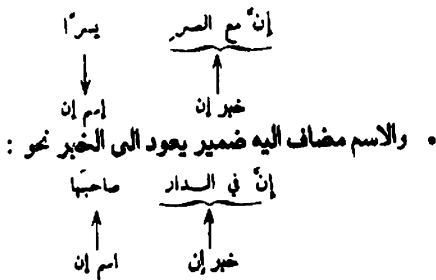 إنّ مع العسر يسرًا
خبر إن إسم إن
• والاسم مضاف اليه ضمير يعود الى الخبر نحو :
إنّ في الدار صاحبَها
خبر إن اسم إن